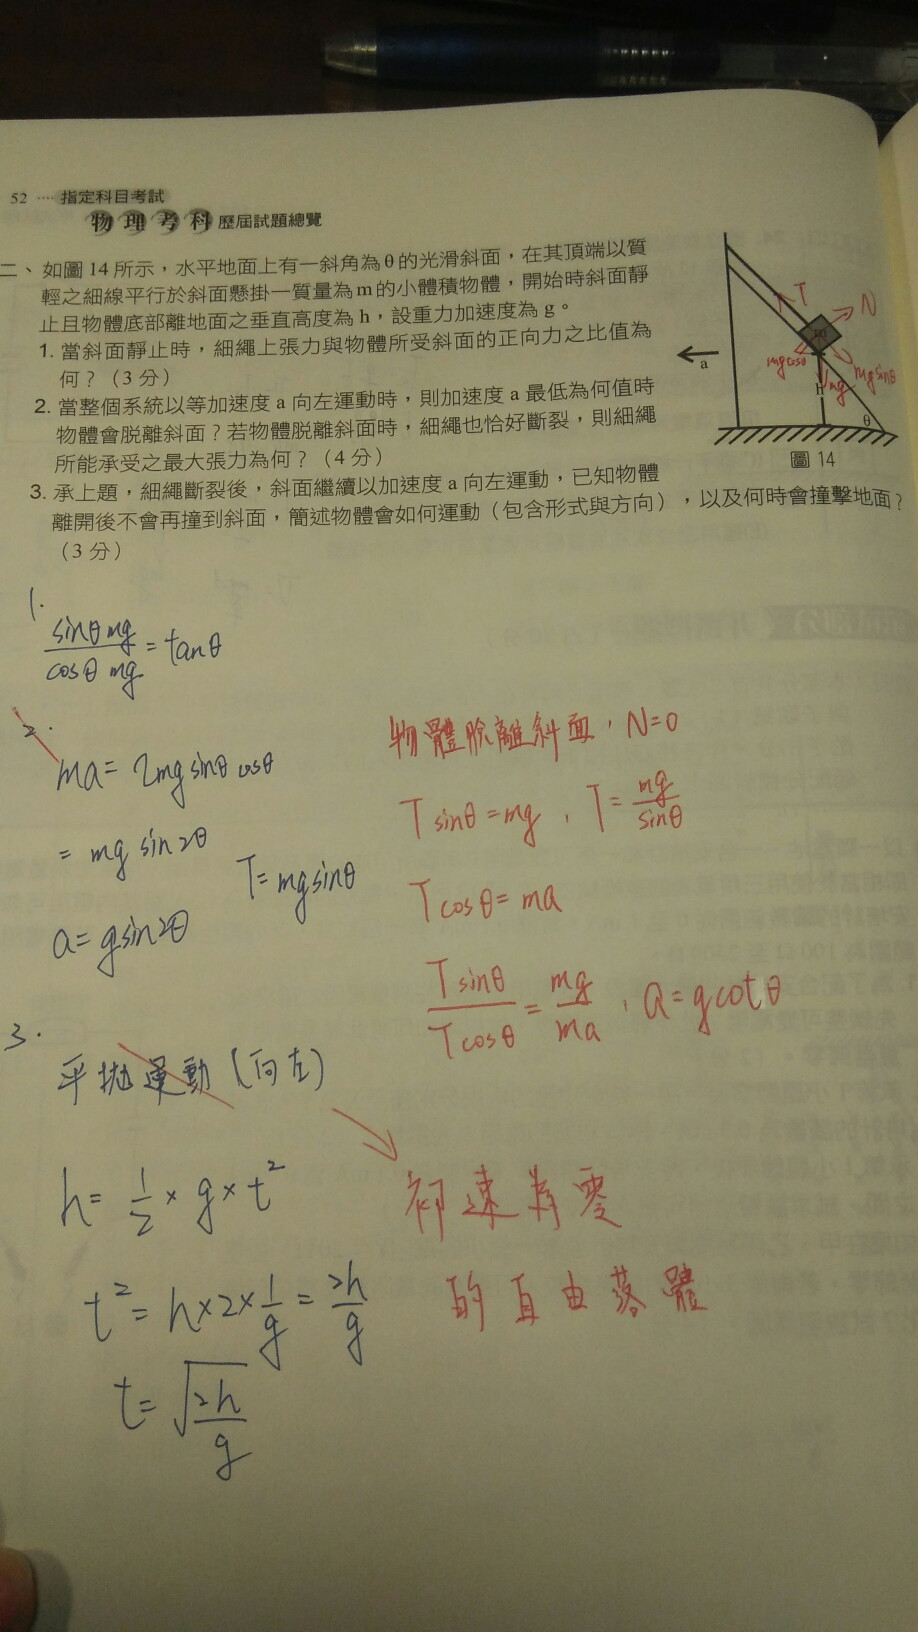 52 ···· 指定科目考試
物理考科 歷屆試題總覽
二、如圖 14 所示，水平地面上有一斜角為 θ 的光滑斜面，在其頂端以質
輕之細線平行於斜面懸掛一質量為 m 的小體積物體，開始時斜面靜
止且物體底部離地面之垂直高度為 h，設重力加速度為 g。
1. 當斜面靜止時，細繩上張力與物體所受斜面的正向力之比值為
何？（3 分）
2. 當整個系統以等加速度 a 向左運動時，則加速度 a 最低為何值時
物體會脫離斜面？若物體脫離斜面時，細繩也恰好斷裂，則細繩
所能承受之最大張力為何？（4 分）
3. 承上題，細繩斷裂後，斜面繼續以加速度 a 向左運動，已知物體
離開後不會再撞到斜面，簡述物體會如何運動（包含形式與方向），以及何時會撞擊地面？
（3 分）
T
N
m
mg cosθ
mg sinθ
mg
a
h
θ
圖 14
1.
sinθ mg / cosθ mg = tanθ
2.
ma = 2mg sinθ cosθ
= mg sin2θ
T = mg sinθ
a = g sin2θ
物體脫離斜面，N=0
T sinθ = mg，T = mg / sinθ
T cosθ = ma
T sinθ / T cosθ = mg / ma，a = g cotθ
3.
平拋運動（向左）
初速為零
的自由落體
h = 1/2 × g × t²
t² = h×2×1/g = 2h/g
t = √(2h/g)